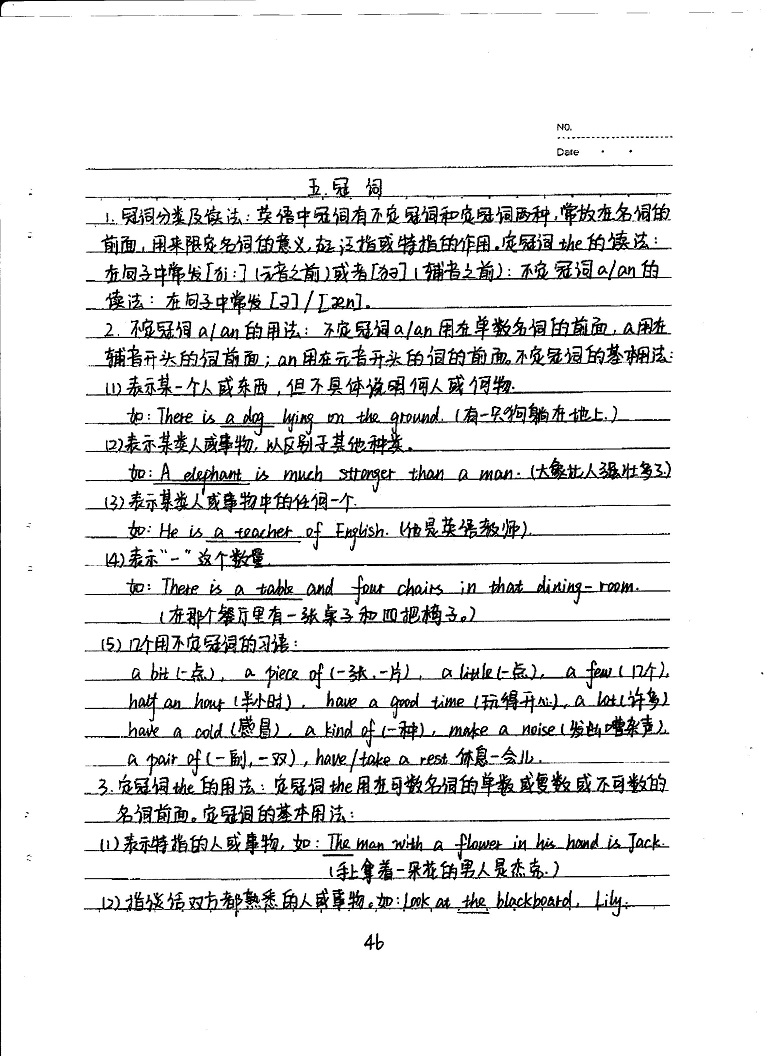 NO.
Date
五.冠 词
1.冠词分类及读法:英语中冠词有不定冠词和定冠词两种,常放在名词的
前面,用来限定名词的意义,起泛指或特指的作用。定冠词the的读法:
在句子中常发[ði:](元音之前)或者[ðə](辅音之前);不定冠词a/an的
读法:在句子中常发[ə]/[æn]。
2.不定冠词a/an的用法:不定冠词a/an用在单数名词的前面,a用在
辅音开头的词前面;an用在元音开头的词的前面。不定冠词的基本用法:
(1)表示某一个人或东西,但不具体说明何人或何物.
如:There is a dog lying on the ground.(有一只狗躺在地上.)
(2)表示某类人或事物,以区别于其他种类。
如:A elephant is much stronger than a man.(大象比人强壮多了)
(3)表示某类人或事物中的任何一个.
如:He is a teacher of English.(他是英语教师).
(4)表示“一”这个数量.
如:There is a table and four chairs in that dining-room.
(在那个餐厅里有一张桌子和四把椅子。)
(5)几个用不定冠词的习语:
a bit(一点), a piece of(一张.一片), a little(一点), a few(几个),
half an hour(半小时), have a good time(玩得开心), a lot(许多)
have a cold(感冒), a kind of(一种), make a noise(发出嘈杂声),
a pair of(一副,一双), have/take a rest 休息一会儿.
3.定冠词the的用法:定冠词the用在可数名词的单数或复数或不可数的
名词前面。定冠词的基本用法:
(1)表示特指的人或事物,如:The man with a flower in his hand is Jack.
(手上拿着一朵花的男人是杰克.)
(2)指谈话双方都熟悉的人或事物。如:Look at the blackboard, Lily.
46